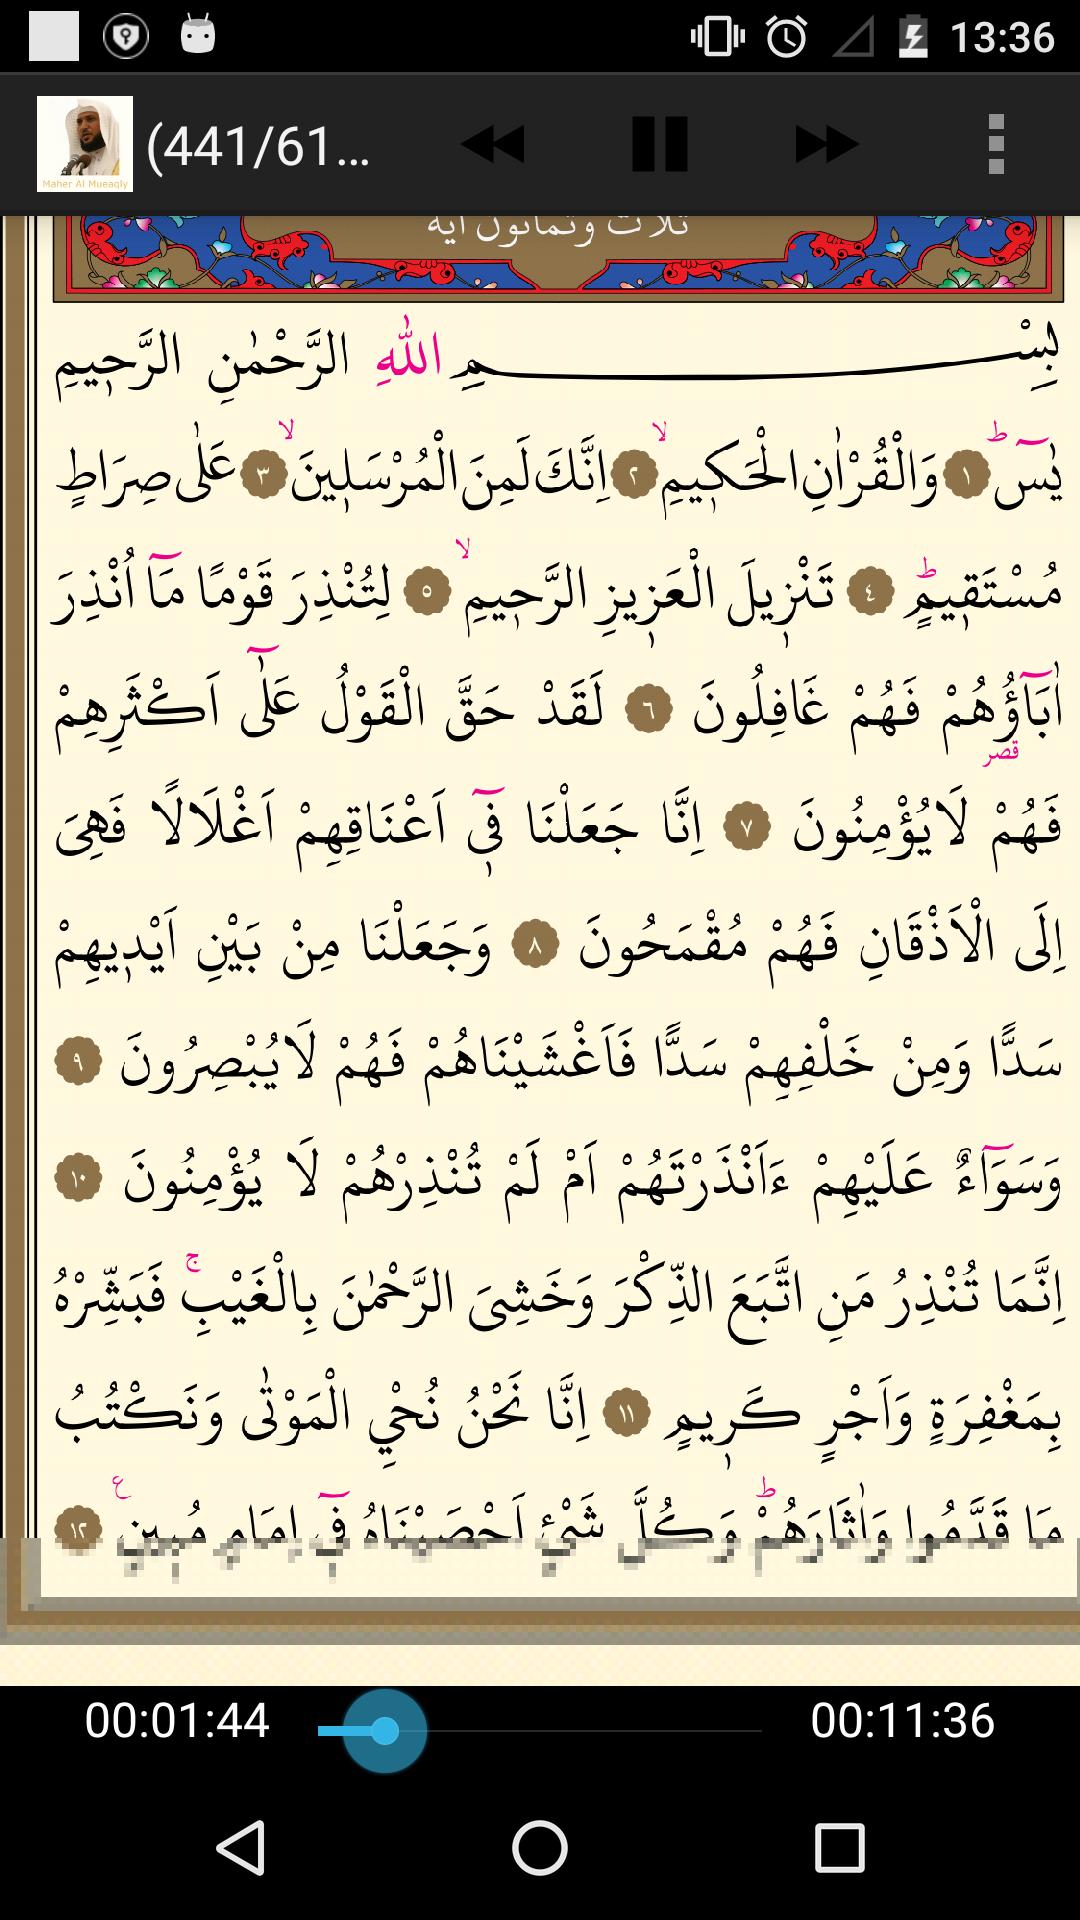 13:36
Maher Al Mueaqly
(441/61...
ثلاث وثمانون آية
بِسْمِ اللّٰهِ الرَّحْمٰنِ الرَّح۪يمِ
يٰسٓ ۜ ﴿١﴾ وَالْقُرْاٰنِ الْحَك۪يمِ ۙ ﴿٢﴾ اِنَّكَ لَمِنَ الْمُرْسَل۪ينَ ۙ ﴿٣﴾ عَلٰى صِرَاطٍ
مُسْتَق۪يمٍ ۜ ﴿٤﴾ تَنْز۪يلَ الْعَز۪يزِ الرَّح۪يمِ ۙ ﴿٥﴾ لِتُنْذِرَ قَوْمًا مَٓا اُنْذِرَ
اٰبَٓاؤُ۬هُمْ فَهُمْ غَافِلُونَ ﴿٦﴾ لَقَدْ حَقَّ الْقَوْلُ عَلٰٓى اَكْثَرِهِمْ
قصر
فَهُمْ لَا يُؤْمِنُونَ ﴿٧﴾ اِنَّا جَعَلْنَا ف۪ٓي اَعْنَاقِهِمْ اَغْلَالًا فَهِىَ
اِلَى الْاَذْقَانِ فَهُمْ مُقْمَحُونَ ﴿٨﴾ وَجَعَلْنَا مِنْ بَيْنِ اَيْد۪يهِمْ
سَدًّا وَمِنْ خَلْفِهِمْ سَدًّا فَاَغْشَيْنَاهُمْ فَهُمْ لَا يُبْصِرُونَ ﴿٩﴾
وَسَوَٓاءٌ عَلَيْهِمْ ءَاَنْذَرْتَهُمْ اَمْ لَمْ تُنْذِرْهُمْ لَا يُؤْمِنُونَ ﴿١٠﴾
اِنَّمَا تُنْذِرُ مَنِ اتَّبَعَ الذِّكْرَ وَخَشِىَ الرَّحْمٰنَ بِالْغَيْبِ ۚ فَبَشِّرْهُ
بِمَغْفِرَةٍ وَاَجْرٍ كَر۪يمٍ ﴿١١﴾ اِنَّا نَحْنُ نُحْيِ الْمَوْتٰى وَنَكْتُبُ
مَا قَدَّمُوا وَاٰثَارَهُمْ ۜ وَكُلَّ شَىْءٍ اَحْصَيْنَاهُ ف۪ٓي اِمَامٍ مُب۪ينٍ ع ﴿١٢﴾
00:01:44 00:11:36